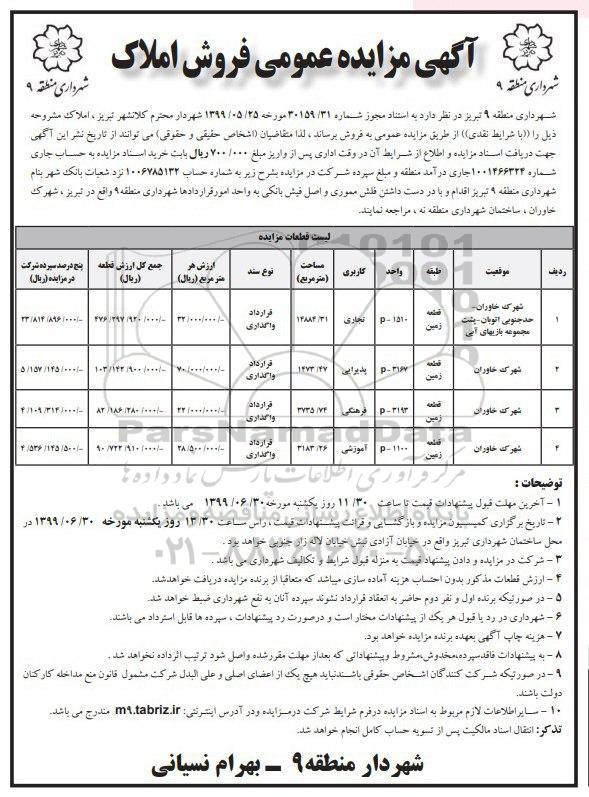 آگهی مزایده عمومی فروش املاک
شهرداری منطقه ۹
شهرداری منطقه ۹
شهرداری منطقه ۹ تبریز در نظر دارد به استناد مجوز شماره ۳۰۱۵۹/۳۱ مورخه ۱۳۹۹/۰۵/۲۵ شهردار محترم کلانشهر تبریز ، املاک مشروحه
ذیل را ((با شرایط نقدی)) از طریق مزایده عمومی به فروش برساند ، لذا متقاضیان (اشخاص حقیقی و حقوقی) می توانند از تاریخ نشر این آگهی
جهت دریافت اسناد مزایده و اطلاع از شرایط آن در وقت اداری پس از واریز مبلغ ۷۰۰/۰۰۰ ریال بابت خرید اسناد مزایده به حساب جاری
شماره ۱۰۰۱۴۶۶۳۲۴جاری درآمد منطقه و مبلغ سپرده شرکت در مزایده بشرح زیر به شماره حساب ۱۰۰۶۷۸۵۱۳۲ نزد شعبات بانک شهر بنام
شهرداری منطقه ۹ تبریز اقدام و با در دست داشتن فلش مموری و اصل فیش بانکی به واحد امورقراردادها شهرداری منطقه۹ واقع در تبریز ، شهرک
خاوران ، ساختمان شهرداری منطقه نه ، مراجعه نمایند.
لیست قطعات مزایده
ردیف موقعیت طبقه واحد کاربری مساحت (مترمربع) نوع سند ارزش هر مترمربع (ریال) جمع کل ارزش قطعه (ریال) پنج درصد سپرده شرکت در مزایده (ریال)
۱ شهرک خاوران- حدجنوبی اتوبان-پشت مجموعه بازیهای آبی قطعه زمین p-۱۵۱۰ تجاری ۱۴۸۸۴/۳۱ قرارداد واگذاری ۳۲/۰۰۰/۰۰۰/- ۴۷۶/۲۹۷/۹۲۰/۰۰۰/- ۲۳/۸۱۴/۸۹۶/۰۰۰/-
۲ شهرک خاوران قطعه زمین p-۳۱۶۷ پذیرایی ۱۴۷۳/۴۷ قرارداد واگذاری ۷۰/۰۰۰/۰۰۰/- ۱۰۳/۱۴۲/۹۰۰/۰۰۰/- ۵/۱۵۷/۱۴۵/۰۰۰/-
۳ شهرک خاوران قطعه زمین p-۳۱۹۳ فرهنگی ۳۷۳۵/۷۴ قرارداد واگذاری ۲۲/۰۰۰/۰۰۰/- ۸۲/۱۸۶/۲۸۰/۰۰۰/- ۴/۱۰۹/۳۱۴/۰۰۰/-
۴ شهرک خاوران قطعه زمین p-۱۱۰۰ آموزشی ۳۱۸۳/۲۶ قرارداد واگذاری ۲۸/۵۰۰/۰۰۰/- ۹۰/۷۲۲/۹۱۰/۰۰۰/- ۴/۵۳۶/۱۴۵/۵۰۰/-
توضیحات :
۱ - آخرین مهلت قبول پیشنهادات قیمت تا ساعت ۱۱/۳۰ روز یکشنبه مورخه ۱۳۹۹/۰۶/۳۰ می باشد .
۲ - تاریخ برگزاری کمیسیون مزایده و بازگشایی و قرائت پیشنهادات قیمت ، راس ساعت ۱۳/۳۰ روز یکشنبه مورخه ۱۳۹۹/۰۶/۳۰ در
محل ساختمان شهرداری تبریز واقع در خیابان آزادی نبش خیابان لاله زار جنوبی خواهد بود .
۳ - شرکت در مزایده و دادن پیشنهاد قیمت به منزله قبول شرایط و تکالیف شهرداری می باشد .
۴ - ارزش قطعات مذکور بدون احتساب هزینه آماده سازی میباشد که متعاقبا از برنده مزایده دریافت خواهدشد.
۵ - در صورتیکه برنده اول و نفر دوم حاضر به انعقاد قرارداد نشوند سپرده آنان به نفع شهرداری ضبط خواهد شد.
۶ - شهرداری در رد یا قبول هر یک از پیشنهادات مختار است و درصورت رد پیشنهادات ، سپرده ها قابل استرداد می باشند.
۷ - هزینه چاپ آگهی بعهده برنده مزایده خواهد بود.
۸ - به پیشنهادات فاقدسپرده،مخدوش،مشروط وپیشنهاداتی که بعداز مهلت مقررشده واصل شود ترتیب اثرداده نخواهد شد .
۹ - در صورتیکه شرکت کنندگان اشخاص حقوقی باشندنباید هیچ یک از اعضای اصلی و علی البدل شرکت مشمول قانون منع مداخله کارکنان
دولت باشند.
۱۰ - سایراطلاعات لازم مربوط به اسناد مزایده درفرم شرایط شرکت درمزایده ودر آدرس اینترنتی: m۹.tabriz.ir مندرج می باشد.
تذکر: انتقال اسناد مالکیت پس از تسویه حساب کامل انجام خواهد شد.
شهردار منطقه۹ – بهرام نسیانی
ParsNamadData
مرکز فرآوری اطلاعات پارس نماد داده ها
پایگاه اطلاع رسانی مناقصه و مزایده
۰۲۱-۸۸۳۴۹۶۷۰-۵